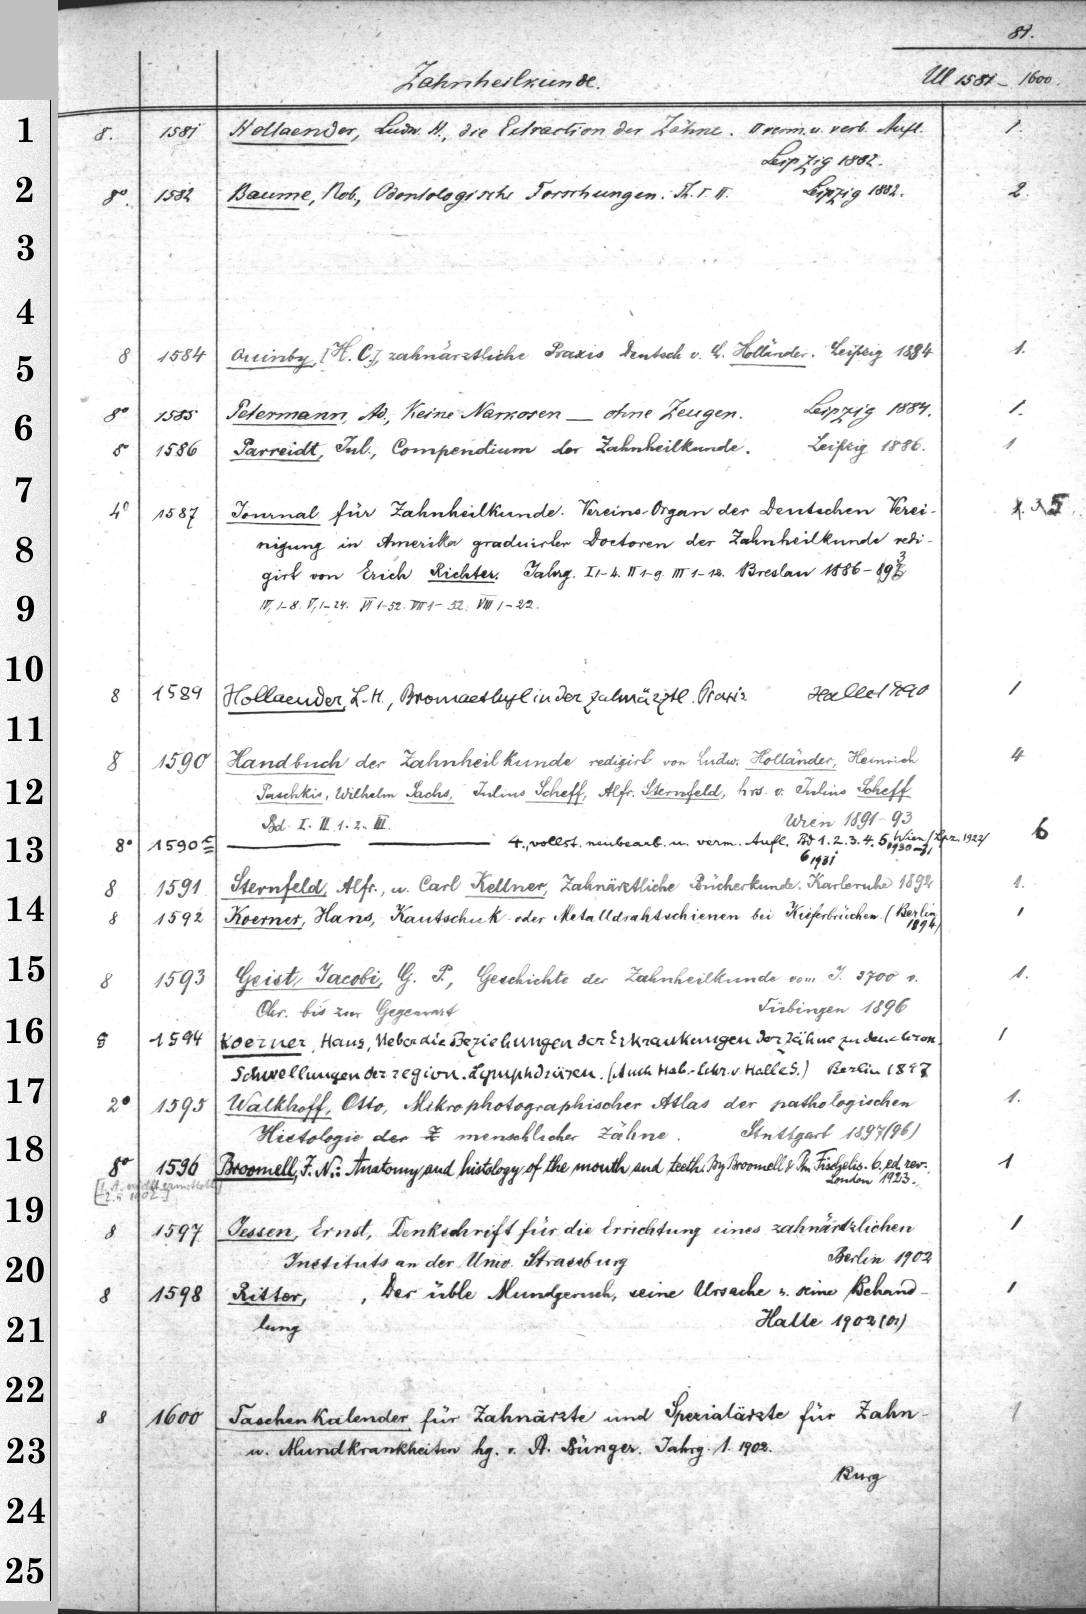 81.
Zahnheilkunde. Ul 1581 – 1600.
1 8. 1581 Hollaender, Ludw. H., die Extraction der Zähne. II verm. u. verb. Aufl. 1.
Leipzig 1882.
2 8o. 1582 Baume, Rob., Odontologische Forschungen. Th. I. II. Leipzig 1882. 2.
3
4
5 8 1584 Quinby, [H. C.], zahnärztliche Praxis Deutsch v. L. Holländer. Leipzig 1884 1.
6 8o 1585 Petermann, Ad., Keine Narkosen — ohne Zeugen. Leipzig 1884. 1.
8 1586 Parreidt, Jul., Compendium der Zahnheilkunde. Leipzig 1886. 1
7 4o 1587 Journal für Zahnheilkunde. Vereins-Organ der Deutschen Verei- 5
8 nigung in Amerika graduirter Doctoren der Zahnheilkunde redi-
girt von Erich Richter. Jahrg. I 1–4. II 1–9. III 1–12. Breslau 1886–93
9 IV, 1–8. V, 1–24. VI 1–52. VII 1–52. VIII 1–22.
10
8 1589 Hollaender, L. H., Bromaethyl in der zahnärztl. Praxis Halle 1890 1
11
8 1590 Handbuch der Zahnheilkunde redigirt von Ludw. Holländer, Heinrich 4
12 Paschkis, Wilhelm Sachs, Julius Scheff, Alfr. Sternfeld, hrs. v. Julius Scheff
Bd. I. II 1. 2. III. Wien 1891–93
13 8o 1590 c — — 4., vollst. neubearb. u. verm. Aufl. Bd 1. 2. 3. 4. 5. Wien/Lpz. 1922/ 6
6 1931
8 1591 Sternfeld, Alfr., u. Carl Kellner, Zahnärztliche Bücherkunde. Karlsruhe 1892 1.
14 8 1592 Koerner, Hans, Kautschuk- oder Metalldrahtschienen bei Kieferbrüchen. (Berlin 1
1894)
15 8 1593 Geist-Jacobi, G. P., Geschichte der Zahnheilkunde vom J. 3700 v. 1.
Chr. bis zur Gegenwart Tübingen 1896
16 8 1594 Koerner, Hans, Ueber die Beziehungen der Erkrankungen der Zähne zu den chron. 1
Schwellungen der region. Lymphdrüsen. (Auch Hab.-Schr. v. Halle S.) Berlin 1897
17 2o 1595 Walkhoff, Otto, Mikrophotographischer Atlas der pathologischen 1.
Histologie der menschlicher Zähne. Stuttgart 1897(96)
18 8o 1596 Broomell, J. N.: Anatomy and histology of the mouth and teeth. By Broomell & Ph. Fischelis. 6. ed. rev. 1
London 1923.
19 8 1597 Jessen, Ernst, Denkschrift für die Errichtung eines zahnärztlichen 1
Instituts an der Univ. Strassburg Berlin 1902
20 8 1598 Ritter, , Der üble Mundgeruch, seine Ursache u. seine Behand- 1
21 lung Halle 1902(01)
22
8 1600 Taschenkalender für Zahnärzte und Spezialärzte für Zahn- 1
23 u. Mundkrankheiten hg. v. A. Bünger. Jahrg. 1. 1902.
Burg
24
25